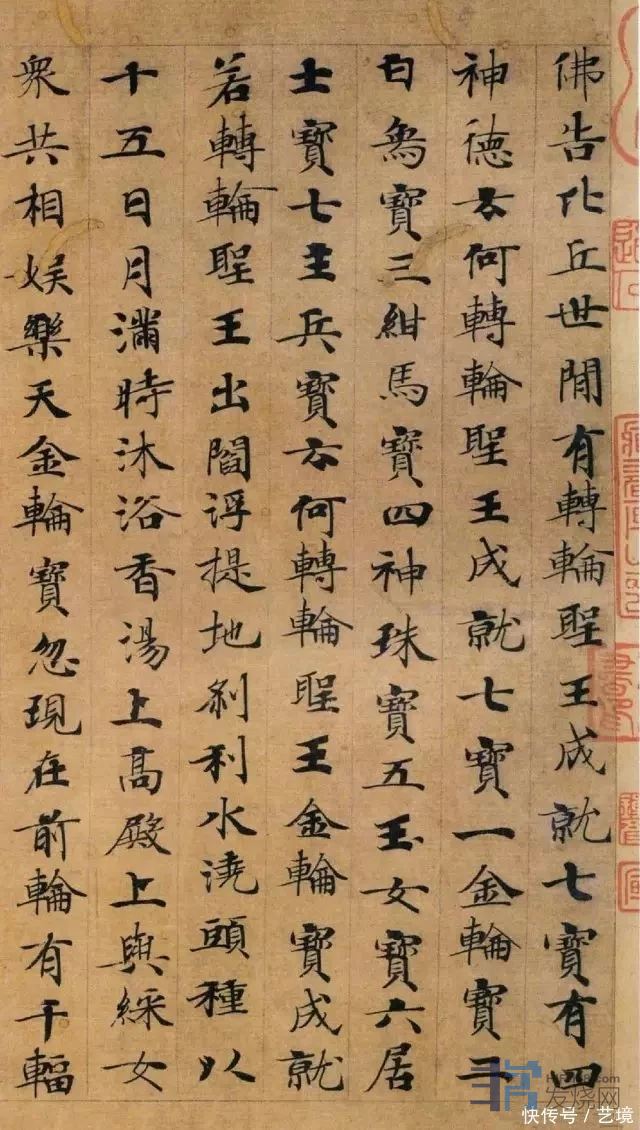 佛告比丘世間有轉輪聖王成就七寶有四
神德云何轉輪聖王成就七寶一金輪寶二
白象寶三紺馬寶四神珠寶五玉女寶六居
士寶七主兵寶云何轉輪聖王金輪寶成就
若轉輪聖王出閻浮提地剎利水澆頭種以
十五日月滿時沐浴香湯上高殿上與綵女
衆共相娛樂天金輪寶忽現在前輪有千輻
发烧网
快传号 / 艺境